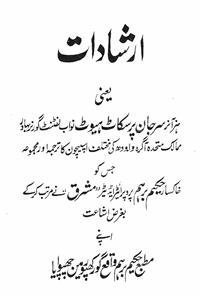 ارشادات
یعنی
ہز آنر سر جان پرسکاٹ ہیوٹ نواب لفٹنٹ گورنر بہادر
ممالک متحدہ آگرہ و اودھ کی مختلف اسپیچوں کا ترجمہ اور مجموعہ
جس کو
خاکسار حکیم برہم پروپرائٹر ایڈیٹر مشرق نے مرتب کرکے
بغرض اشاعت
اپنے
مطبع حکیم برہم واقع گورکھپور میں چھپوایا